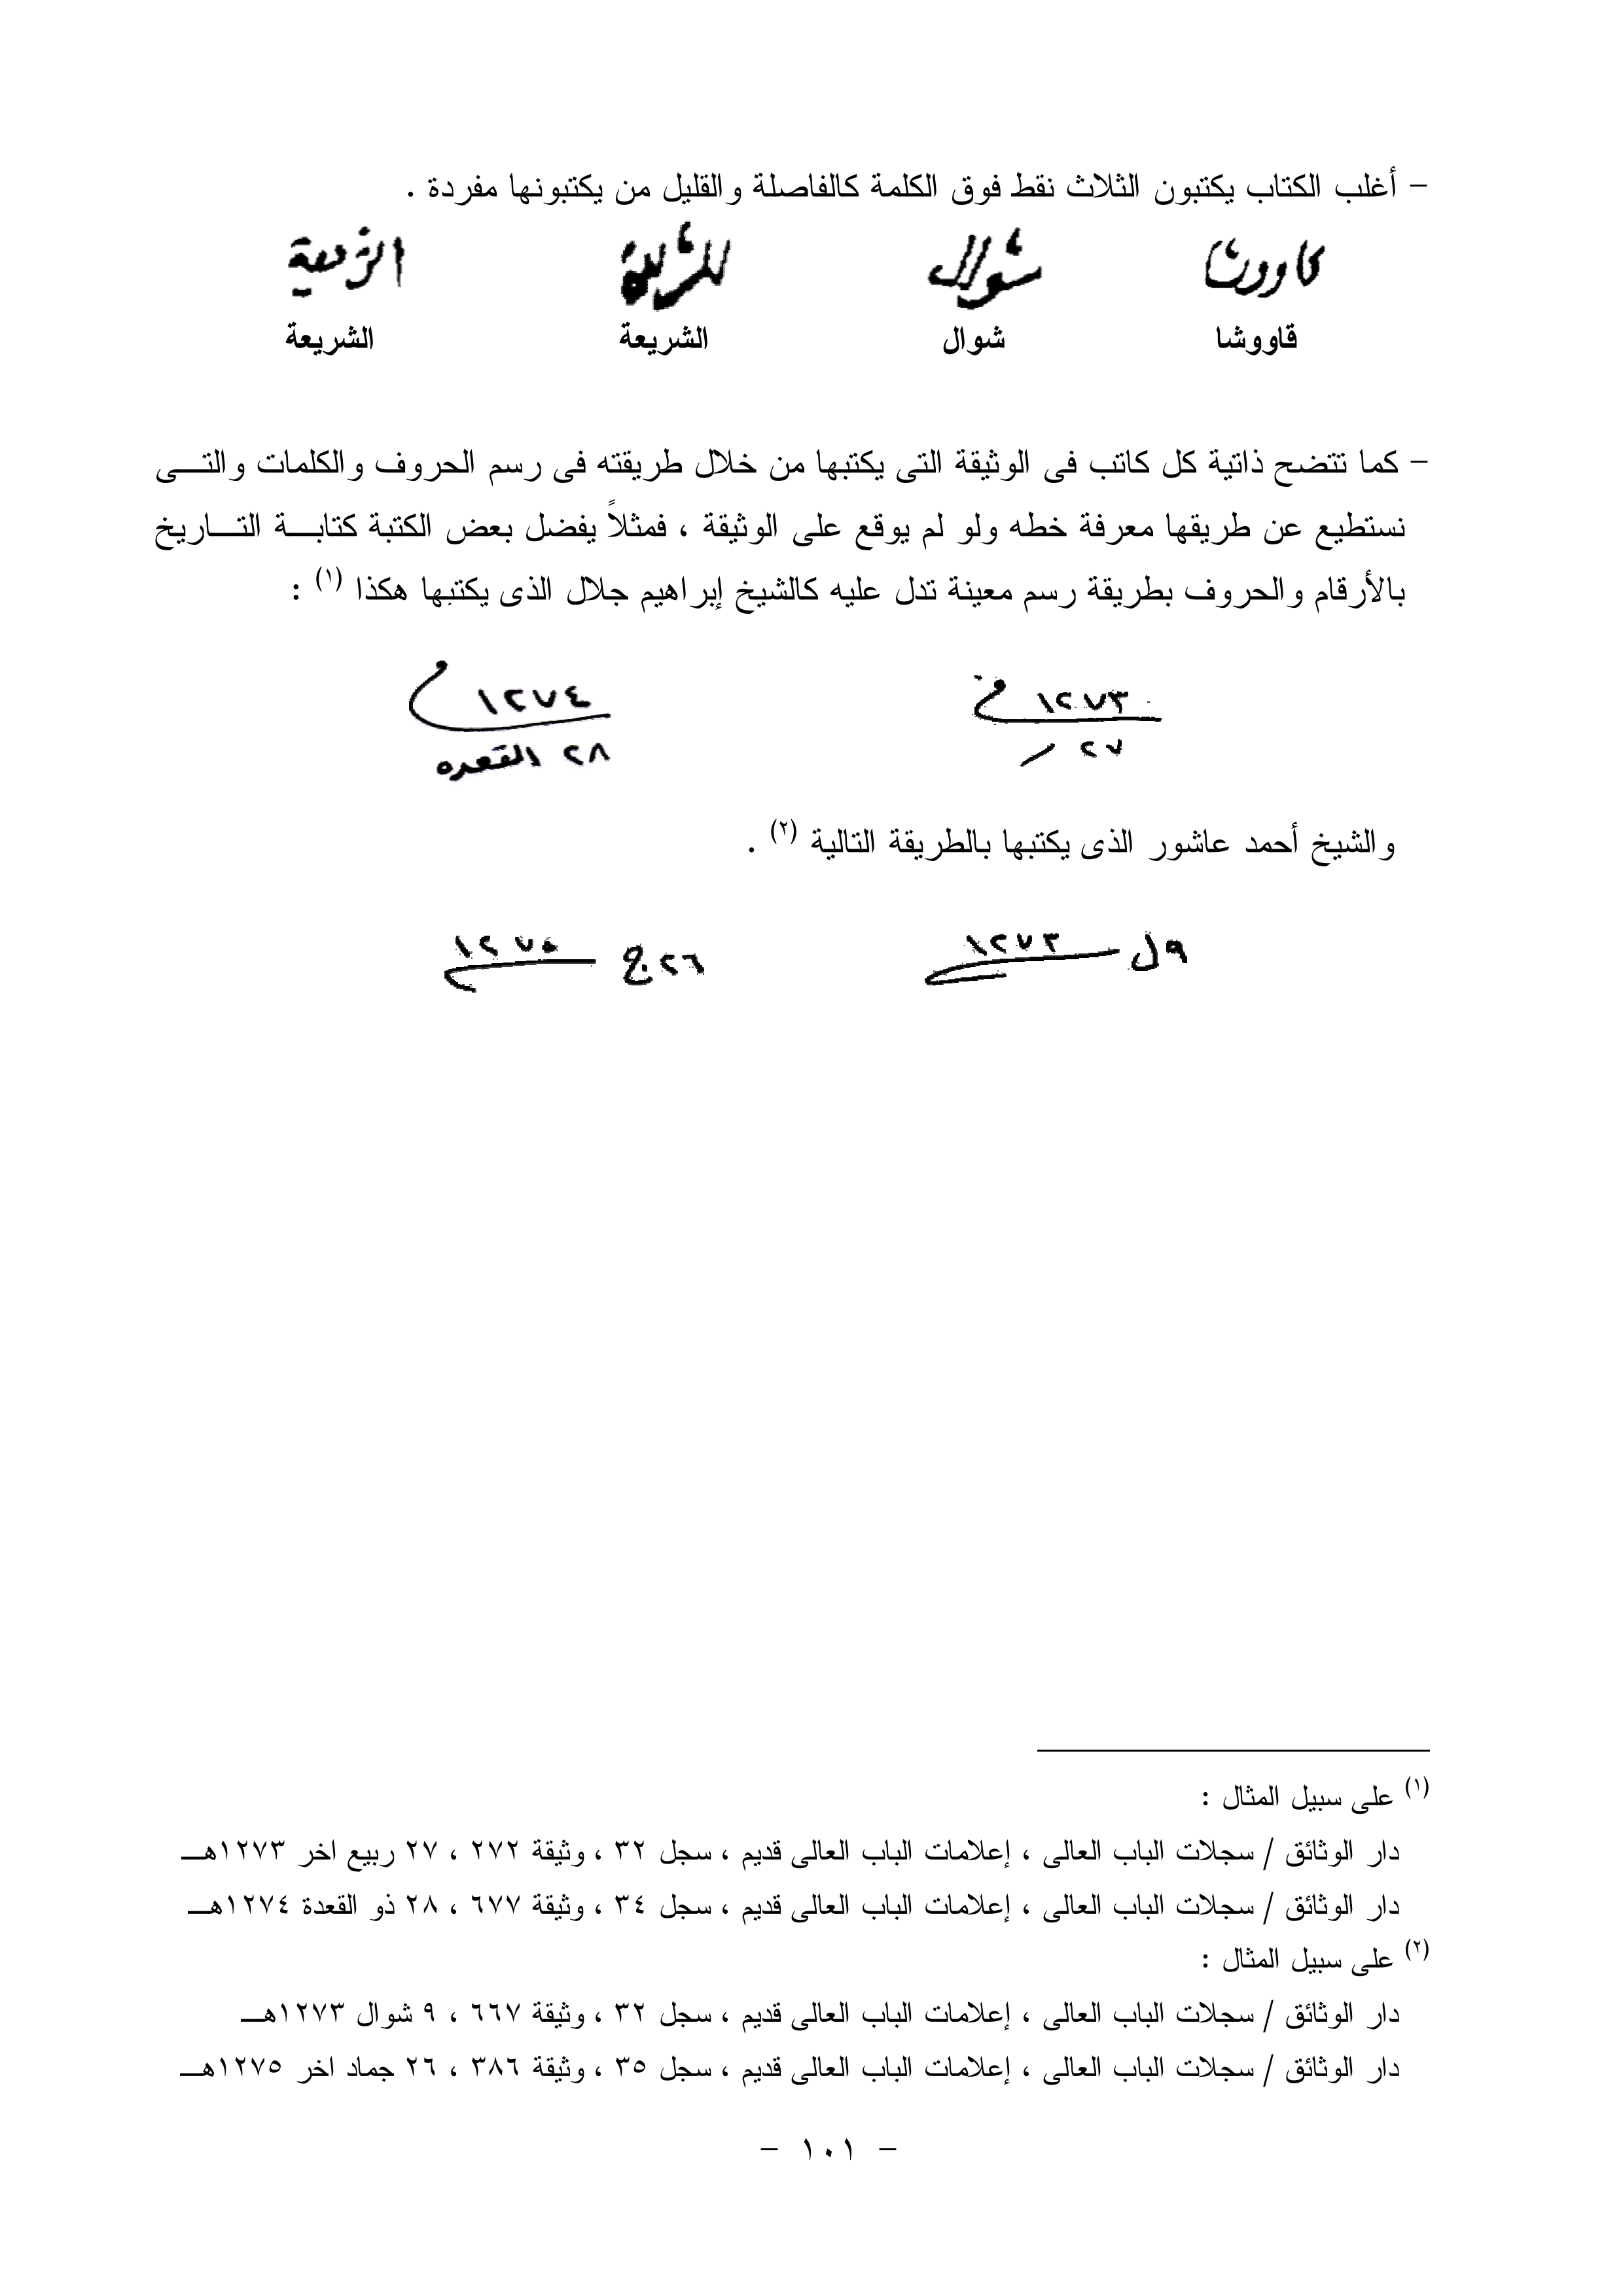 – أغلب الكتاب يكتبون الثلاث نقط فوق الكلمة كالفاصلة والقليل من يكتبونها مفردة .
شوال
قاووشا شوال الشريعة الشريعة
– كما تتضح ذاتية كل كاتب فى الوثيقة التى يكتبها من خلال طريقته فى رسم الحروف والكلمات والتـــى
نستطيع عن طريقها معرفة خطه ولو لم يوقع على الوثيقة ، فمثلاً يفضل بعض الكتبة كتابـــة التـــاريخ
بالأرقام والحروف بطريقة رسم معينة تدل عليه كالشيخ إبراهيم جلال الذى يكتبها هكذا (١) :
١٢٧٣ ١٢٧٤
٢٧ ٢٨ القعده
والشيخ أحمد عاشور الذى يكتبها بالطريقة التالية (٢) .
٩ ل ١٢٧٣ ٢٦ ج ١٢٧٥
(١) على سبيل المثال :
دار الوثائق / سجلات الباب العالى ، إعلامات الباب العالى قديم ، سجل ٣٢ ، وثيقة ٢٧٢ ، ٢٧ ربيع اخر ١٢٧٣هـــ
دار الوثائق / سجلات الباب العالى ، إعلامات الباب العالى قديم ، سجل ٣٤ ، وثيقة ٦٧٧ ، ٢٨ ذو القعدة ١٢٧٤هـــ
(٢) على سبيل المثال :
دار الوثائق / سجلات الباب العالى ، إعلامات الباب العالى قديم ، سجل ٣٢ ، وثيقة ٦٦٧ ، ٩ شوال ١٢٧٣هـــ
دار الوثائق / سجلات الباب العالى ، إعلامات الباب العالى قديم ، سجل ٣٥ ، وثيقة ٣٨٦ ، ٢٦ جماد اخر ١٢٧٥هـــ
– ١٠١ –